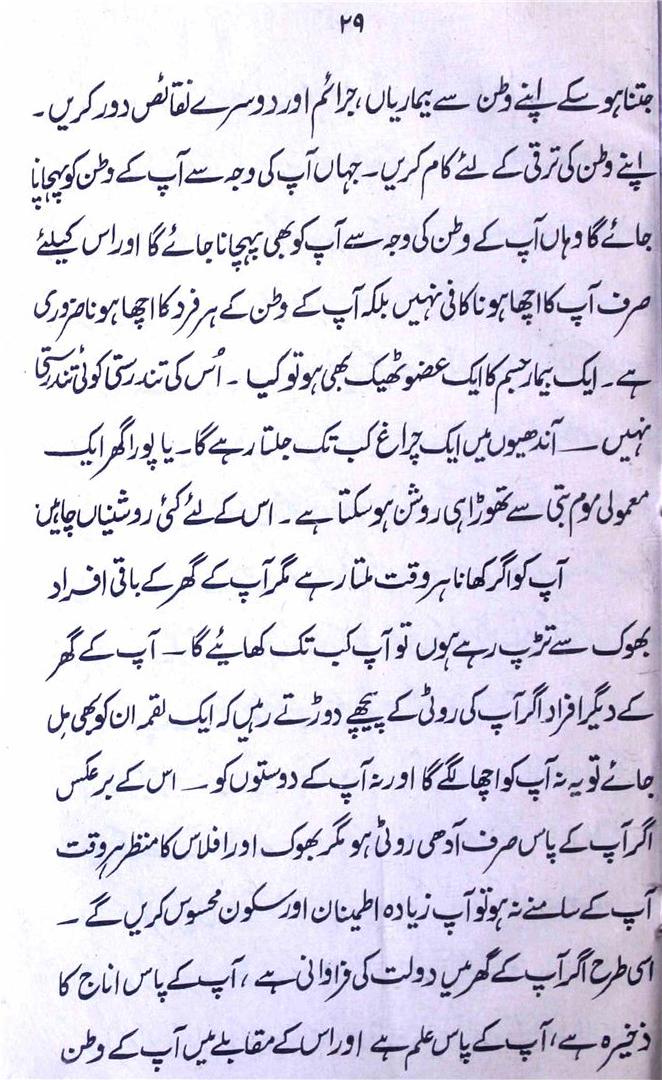 ۲۹
جتنا ہو سکے اپنے وطن سے بیماریاں، جرائم اور دوسرے نقائص دور کریں۔
اپنے وطن کی ترقی کے لئے کام کریں۔ جہاں آپ کی وجہ سے آپ کے وطن کو پہچانا
جائے گا وہاں آپ کے وطن کی وجہ سے آپ کو بھی پہچانا جائے گا اور اس کیلئے
صرف آپ کا اچھا ہونا کافی نہیں بلکہ آپ کے وطن کے ہر فرد کا اچھا ہونا ضروری
ہے۔ ایک بیمار جسم کا ایک عضو ٹھیک بھی ہو تو کیا ۔ اُس کی تندرستی کوئی تندرستی
نہیں — آندھیوں میں ایک چراغ کب تک جلتا رہے گا۔ یا پورا گھر ایک
معمولی موم بتی سے تھوڑا ہی روشن ہو سکتا ہے ۔ اس کے لئے کئی روشنیاں چاہئیں
آپ کو اگر کھانا ہر وقت ملتا رہے مگر آپ کے گھر کے باقی افراد
بھوک سے تڑپ رہے ہوں تو آپ کب تک کھایئے گا — آپ کے گھر
کے دیگر افراد اگر آپ کی روٹی کے پیچھے دوڑتے رہیں کہ ایک لقمہ ان کو بھی مل
جائے تو یہ نہ آپ کو اچھا لگے گا اور نہ آپ کے دوستوں کو — اس کے برعکس
اگر آپ کے پاس صرف آدھی روٹی ہو مگر بھوک اور افلاس کا منظر ہر وقت
آپ کے سامنے نہ ہو تو آپ زیادہ اطمینان اور سکون محسوس کریں گے —
اسی طرح اگر آپ کے گھر میں دولت کی فراوانی ہے ، آپ کے پاس اناج کا
ذخیرہ ہے، آپ کے پاس علم ہے اور اس کے مقابلے میں آپ کے وطن